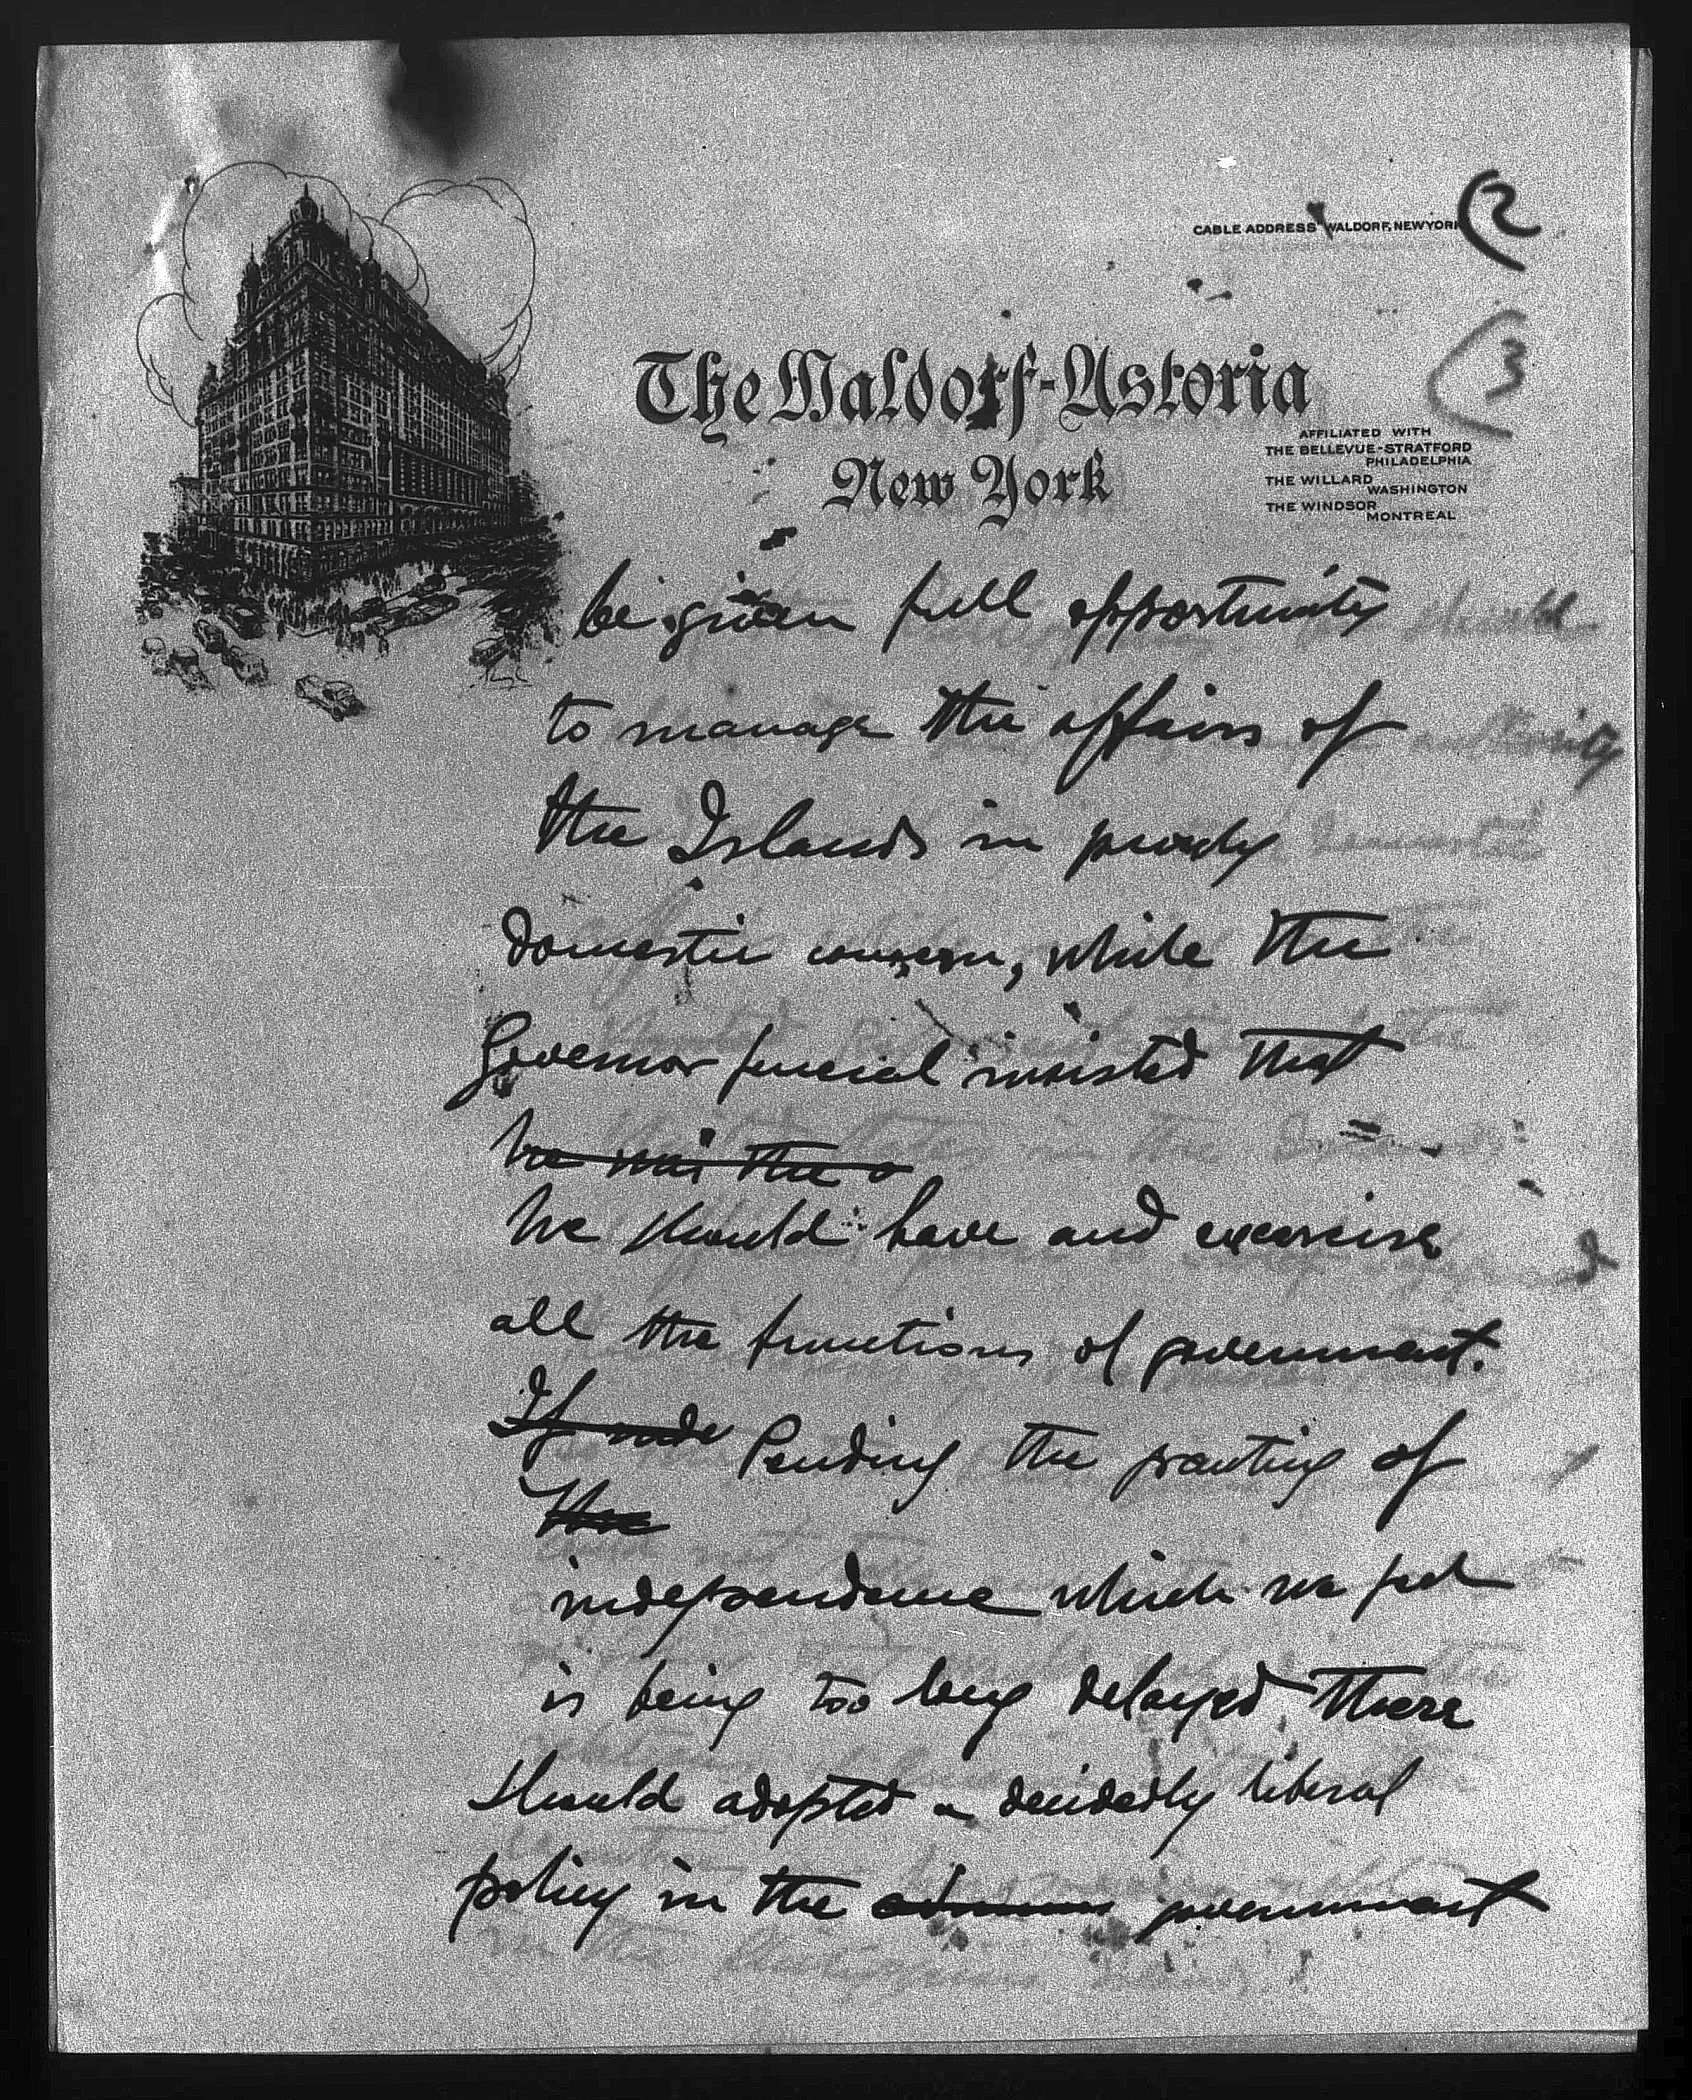 CABLE ADDRESS WALDORF, NEWYORK
(2
(3
The Waldorf-Astoria
New York
AFFILIATED WITH
THE BELLEVUE-STRATFORD
PHILADELPHIA
THE WILLARD
WASHINGTON
THE WINDSOR
MONTREAL
be given full opportunity
to manage the affairs of
the Islands in purely
domestic concern, while the
Governor General insisted that
he was the
he should have and exercise
all the functions of government.
If Pending the granting of
the
independence which we feel
is being too long delayed there
should adopted a decidedly liberal
policy in the government